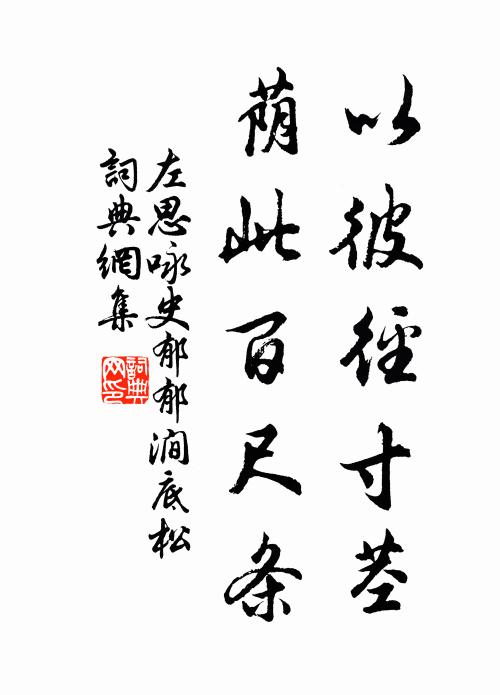 以彼徑寸茎
荫此百尺条
左思咏史郁郁澗底松
詞典網集
詞典网印